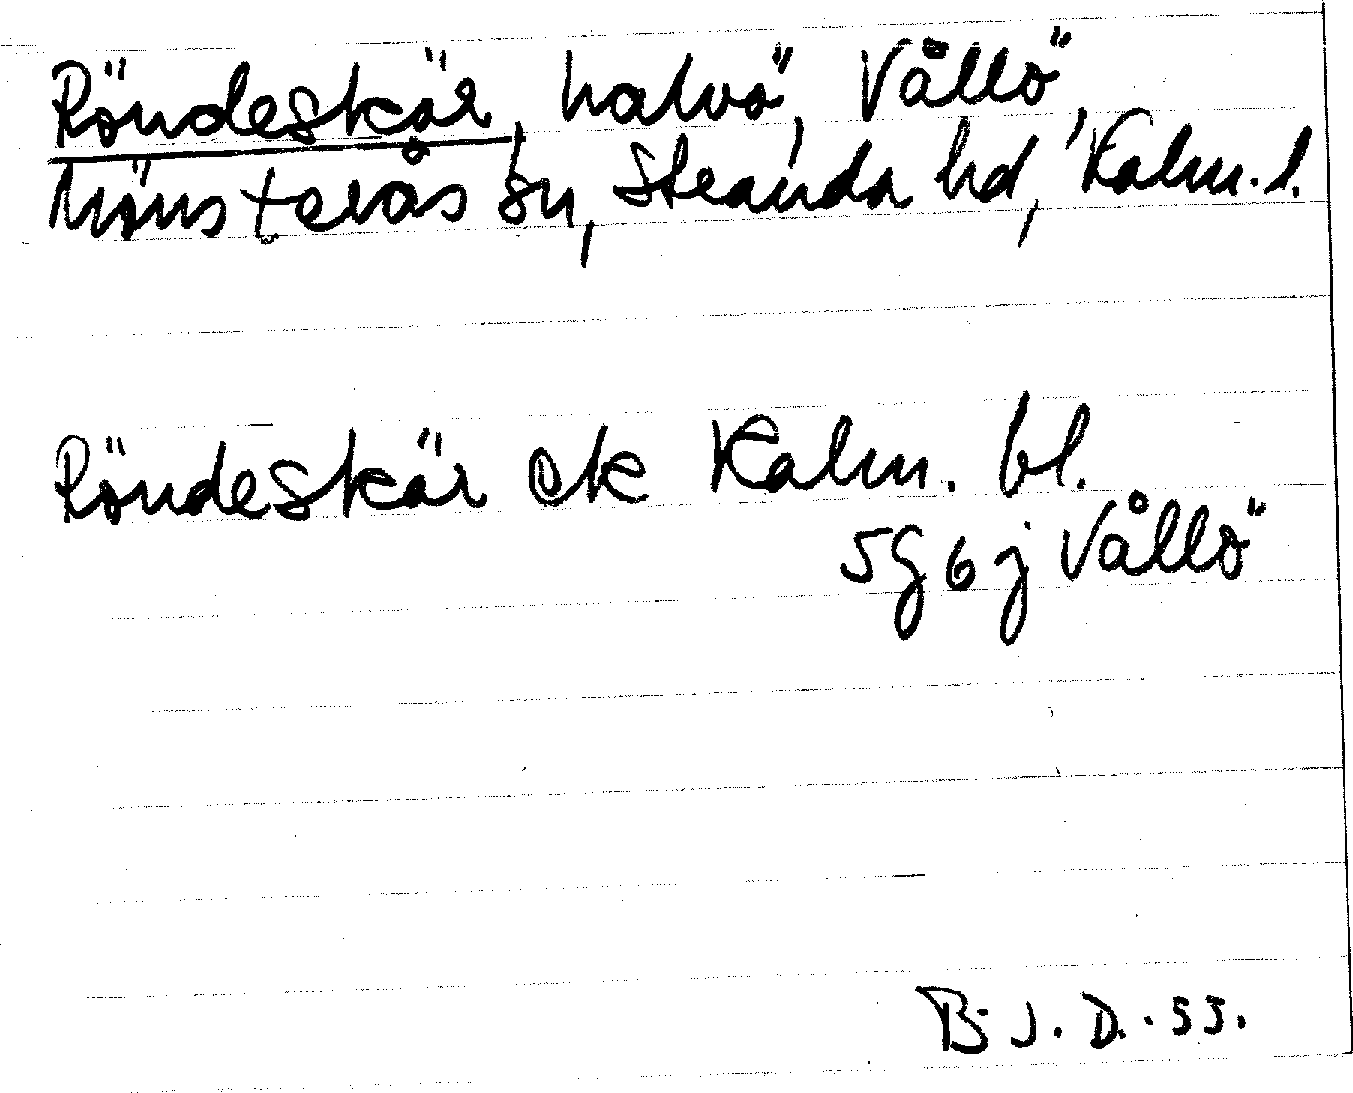 Röndeskär, halvö, Vållö,
Mönsterås sn, Stranda hd, Kalm. l.
Röndeskär ek Kalm. bl.
5g6j Vållö
B. J. D. 53.